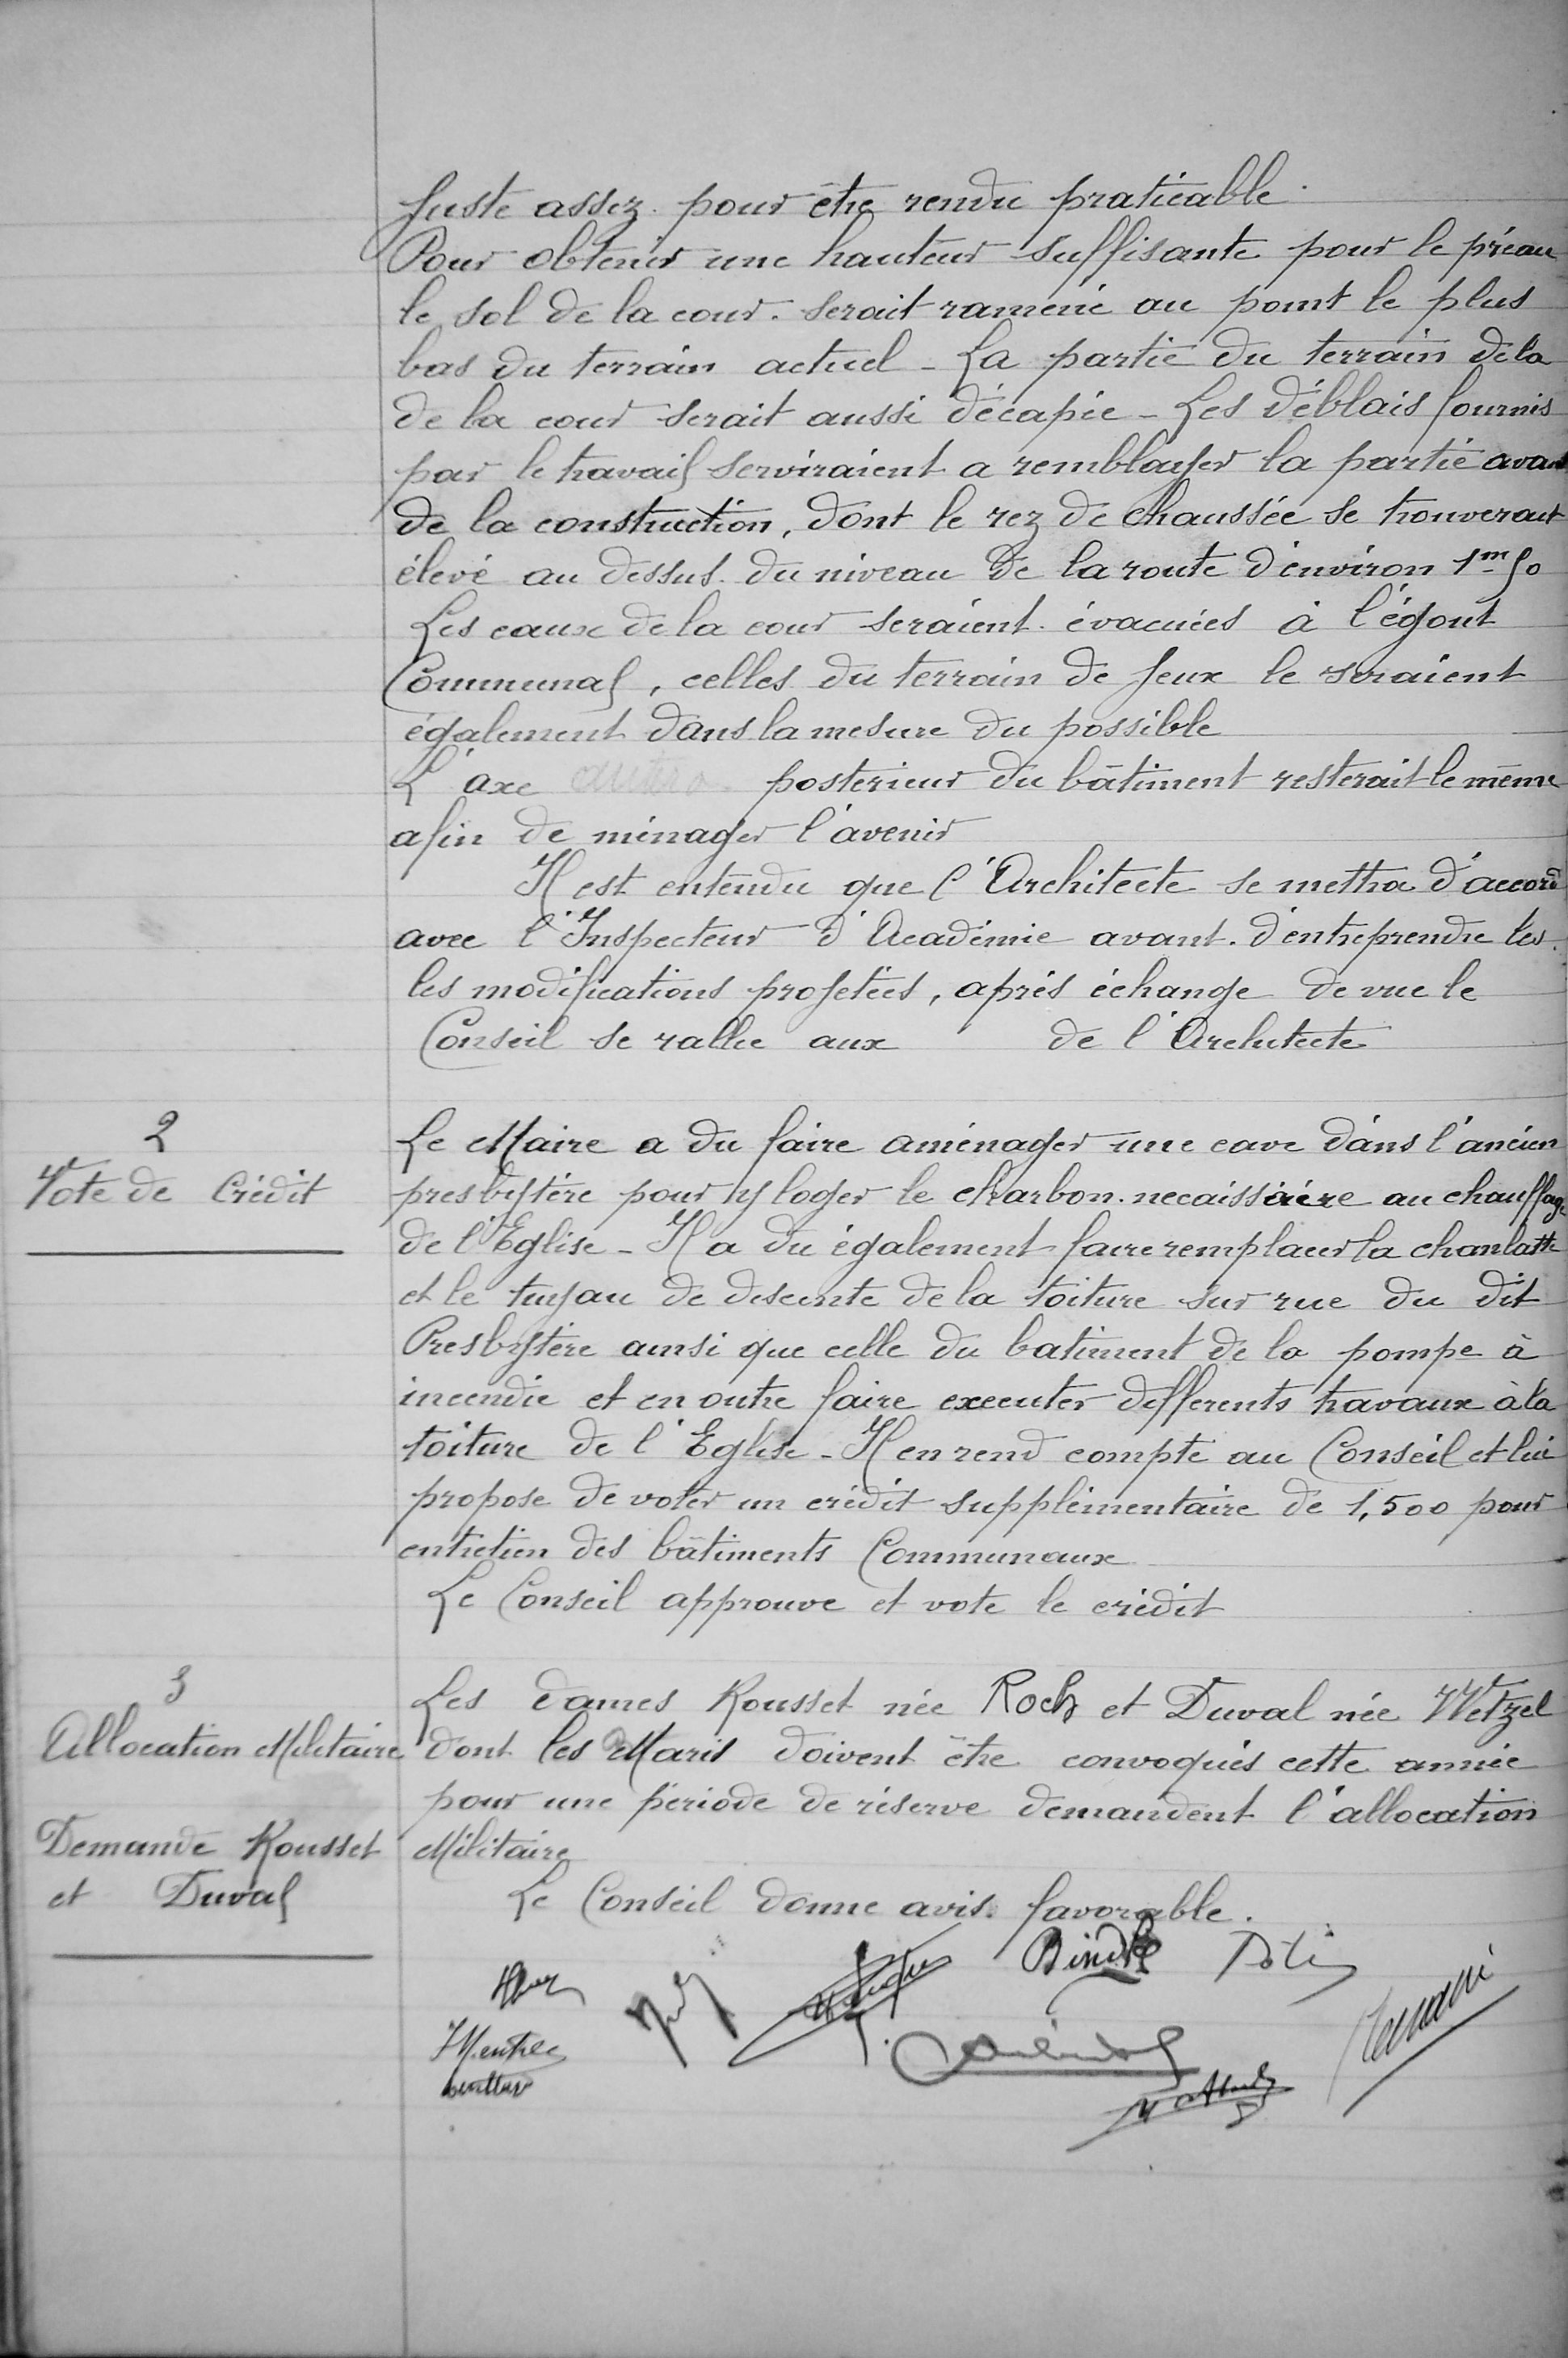 Juste assez pour être rendu praticable.
Pour obtenir une hauteur suffisante pour le préau
le sol de la cour. serait ramené au point le plus
bas du terrain actuel - La partie du terrain de la
de la cour serait aussi décapée - Les déblais fournis
par le travail serviraient a remblayer la partie avant
de la construction, dont le rez de chaussée se trouverait
élevé au dessus du niveau de la route d'environ 1m50
Les eaux de la cour seraient évacuées à l'égout
Communal, celles du terrain de Jeux le seraient
également dans la mesure du possible
L'axe postérieur du bâtiment resterait le même
afin de ménager l'avenir
Il est entendu que l'Architecte se mettra d'accord
avec l'Inspecteur d'Académie avant d'entreprendre les
les modifications projetées, après échange de vue le
Conseil se rallie aux de l'Architecte
2
Vote de Crédit
Le Maire a du faire aménager une cave dans l'ancien
presbytère pour y loger le charbon necaissaire au chauffage
de l'Eglise - Il a du également faire remplacer la chanlatte
et le tuyau de descente de la toiture sur rue du dit
Presbytère ainsi que celle du batiment de la pompe à
incendie et en outre faire executer differents travaux à la
toiture de l'Eglise - Il en rend compte au Conseil et lui
propose de voter un crédit supplémentaire de 1,500 pour
entretien des bâtiments Communaux
Le Conseil approuve et vote le crédit
3
Allocation Militaire
Demande Rousset
et Duval
Les dames Rousset née Roch et Duval née Wetzel
dont les Maris doivent être convoqués cette année
pour une période de réserve demandent l'allocation
Militaire
Le Conseil donne avis favorable.